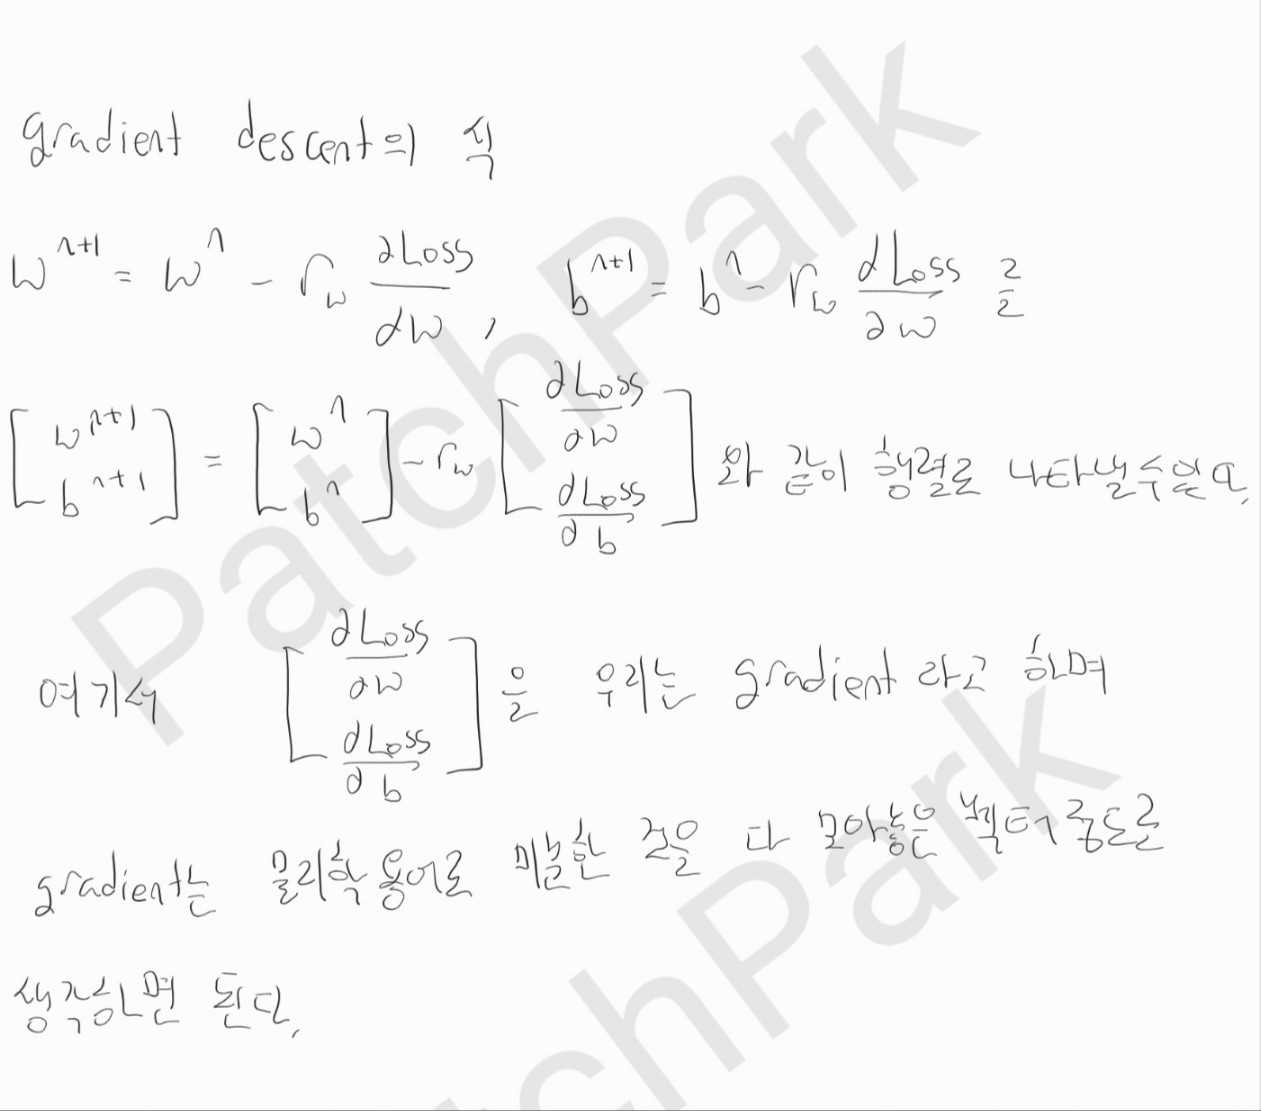 gradient descent의 식
w^{n+1} = w^n - r_w ∂Loss/∂w , b^{n+1} = b^n - r_w ∂Loss/∂w 를
[w^{n+1} b^{n+1}] = [w^n b^n] - r_w [∂Loss/∂w ∂Loss/∂b] 와 같이 행렬로 나타낼수있다.
여기서 [∂Loss/∂w ∂Loss/∂b] 을 우리는 gradient 라고 하며
gradient는 물리학 용어로 미분한 것을 다 모아놓은 벡터 정도로
생각하면 된다.
PatchPark
PatchPark